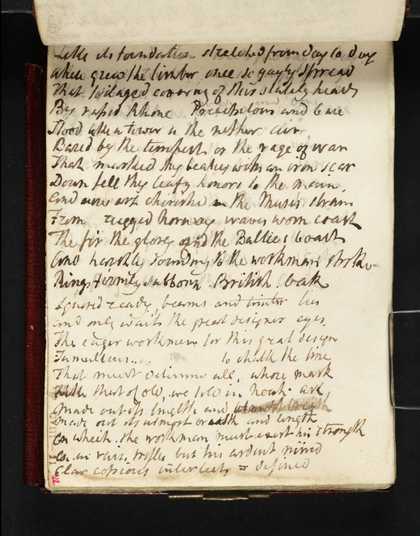 Little its foundation stretched from day to day
Where grew the timber once so gayly spread
That foliaged covering of this stately head
By rapid Rhone Precipitous and bare
Stood like a tower in the nether air
Bared by the tempest or the rage of war
That marked thy beauties with an iron scar
Down fell thy leafy honors to the
And now art cherished in the Muse's strain
From rugged Norway waves worn coast
The fir the glory of the Baltic's boast
And hoarsly sounding to the workmans stroke
Rings, firmly stubborn British Oak
ready beams and timber lies
And only waits the great designer eyes
The eager workmen for this great design
to chalk the line
That must determine all, whose mark
that of old, we told in Noah's ark,
made out its length and
made out its utmost breadth and length
On which the workman must exert his strength
in vain trifle but his ardent mind
Clear copious intellect = defined